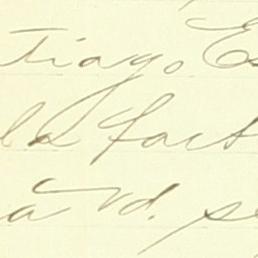 tiago, Es
la fact
a Vd. se